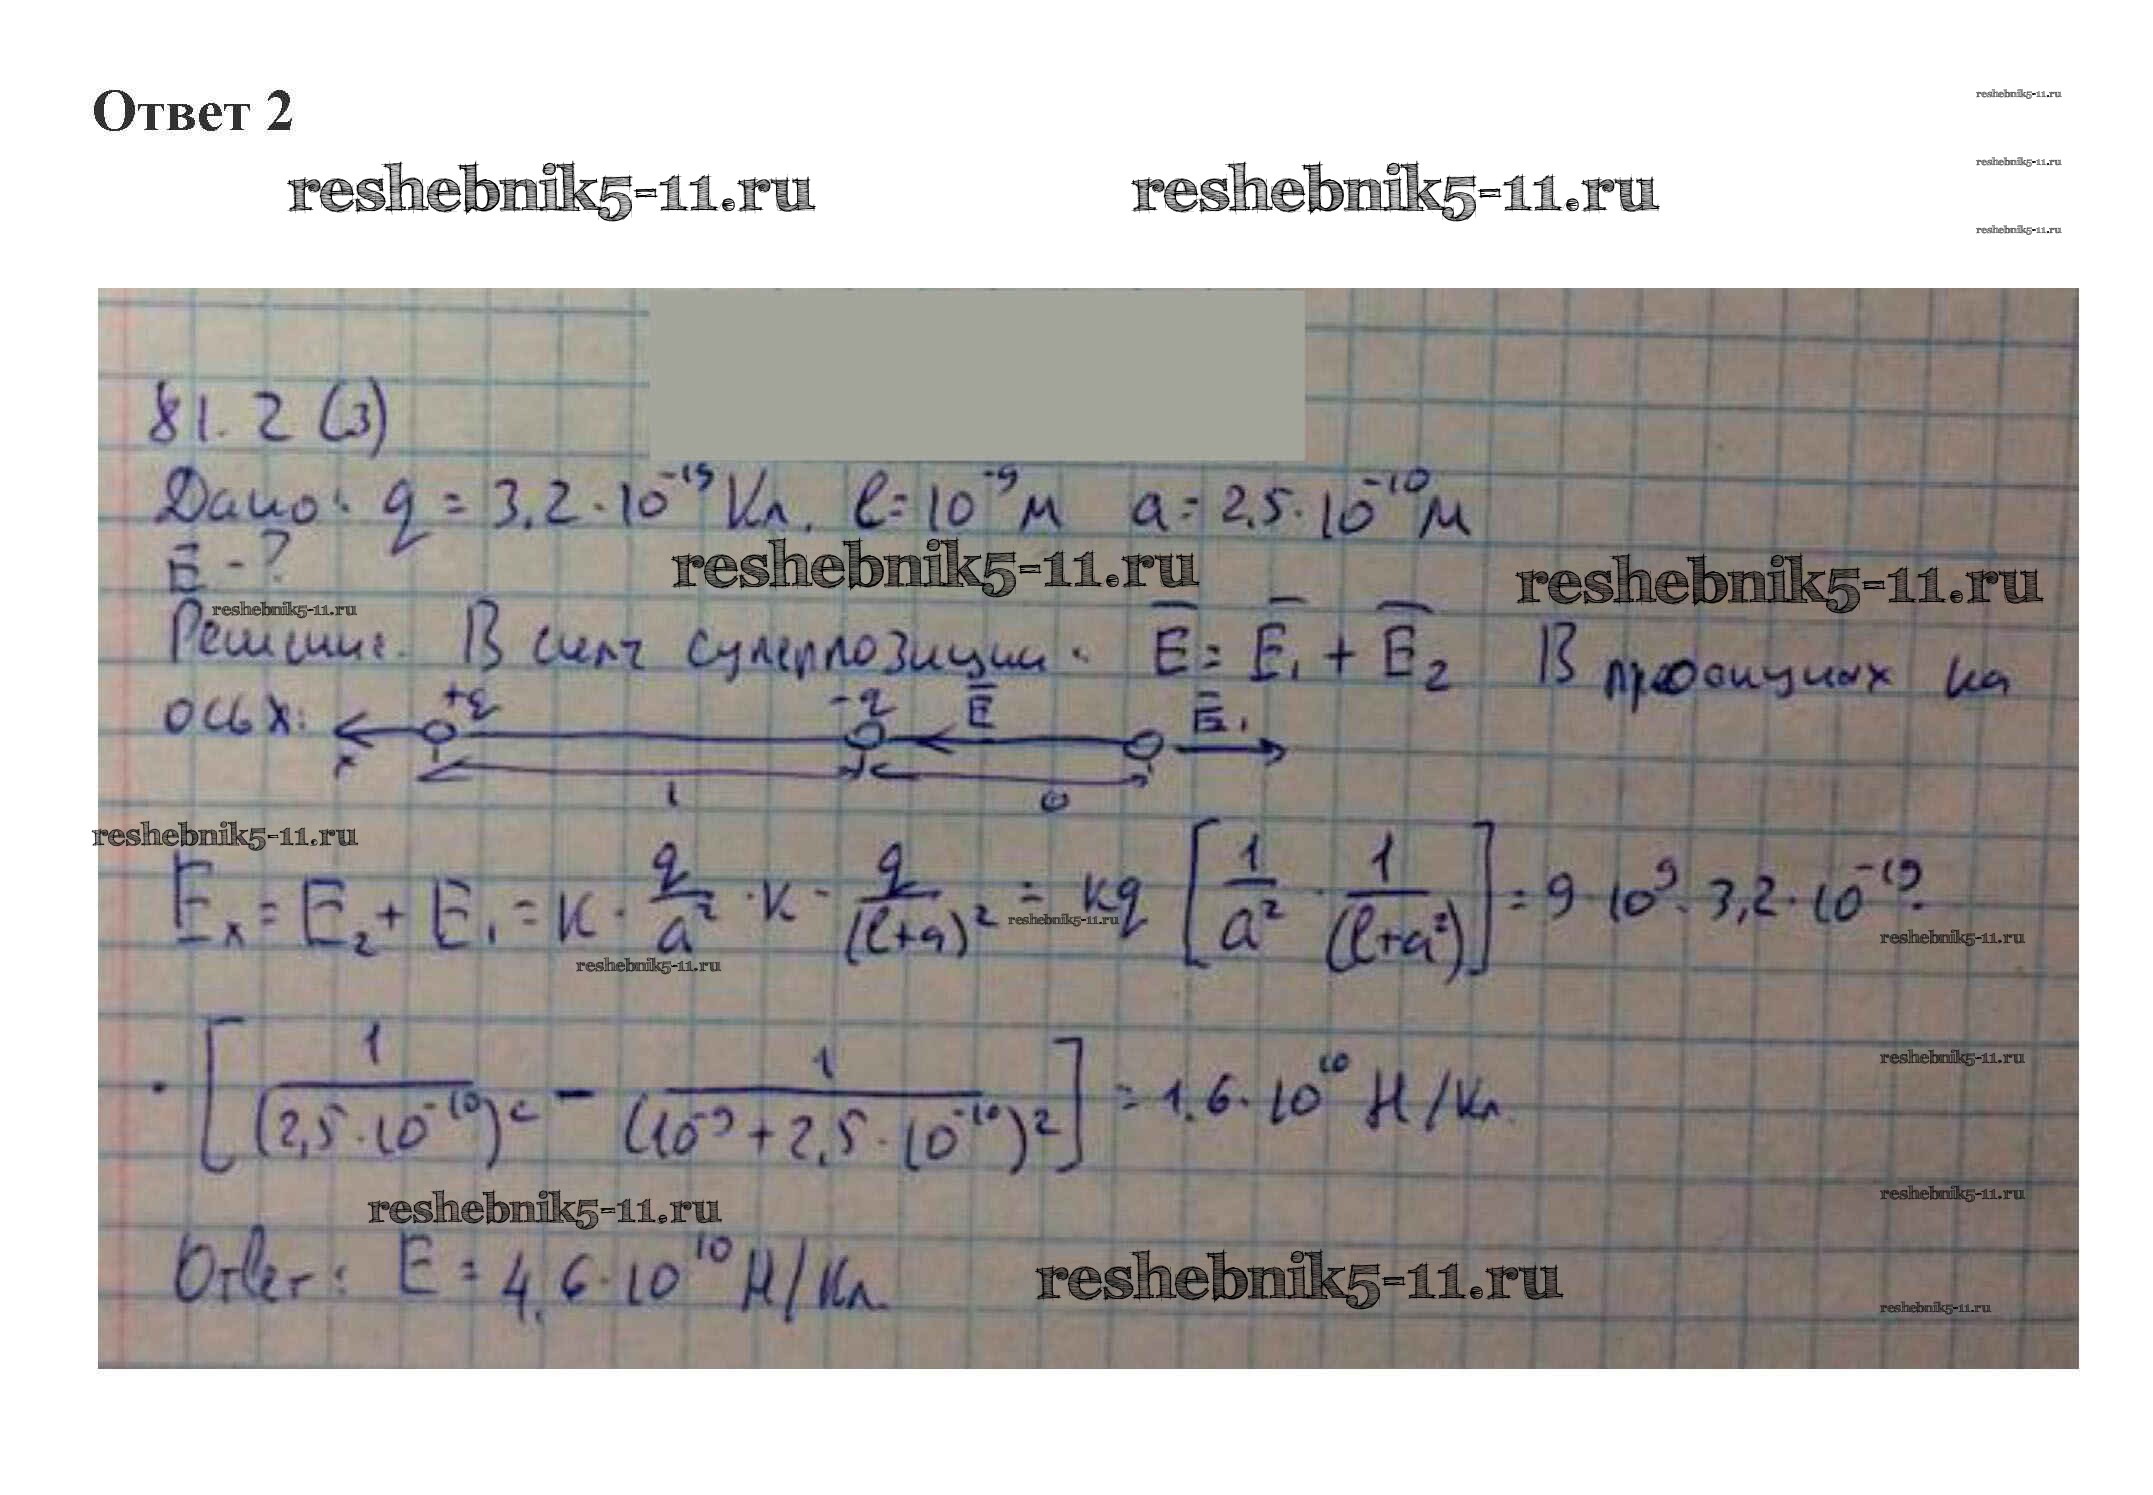 Ответ 2
reshebnik5-11.ru
reshebnik5-11.ru
reshebnik5-11.ru
reshebnik5-11.ru reshebnik5-11.ru
81.2 (3)
Дано: q = 3,2·10⁻¹⁹ Кл. l = 10⁻⁹ м a = 2,5·10⁻¹⁰ м
E̅ - ?
reshebnik5-11.ru reshebnik5-11.ru
reshebnik5-11.ru
Решение. В силу суперпозиции: E̅ = E̅₁ + E̅₂ В проекциях на
ось x: +q -q E̅ E̅₁
x l a
reshebnik5-11.ru
Eₓ = E₂ + E₁ = K · q/a² · K - q/(l+a)² = kq [1/a² · 1/(l+a²)] = 9·10⁹·3,2·10⁻¹⁹·
reshebnik5-11.ru
reshebnik5-11.ru
reshebnik5-11.ru
· [1/(2,5·10⁻¹⁰)² − 1/(10⁻⁹ + 2,5·10⁻¹⁰)²] = 1,6·10¹⁰ Н/Кл.
reshebnik5-11.ru
reshebnik5-11.ru
reshebnik5-11.ru
Ответ: E = 4,6·10¹⁰ Н/Кл.
reshebnik5-11.ru
reshebnik5-11.ru